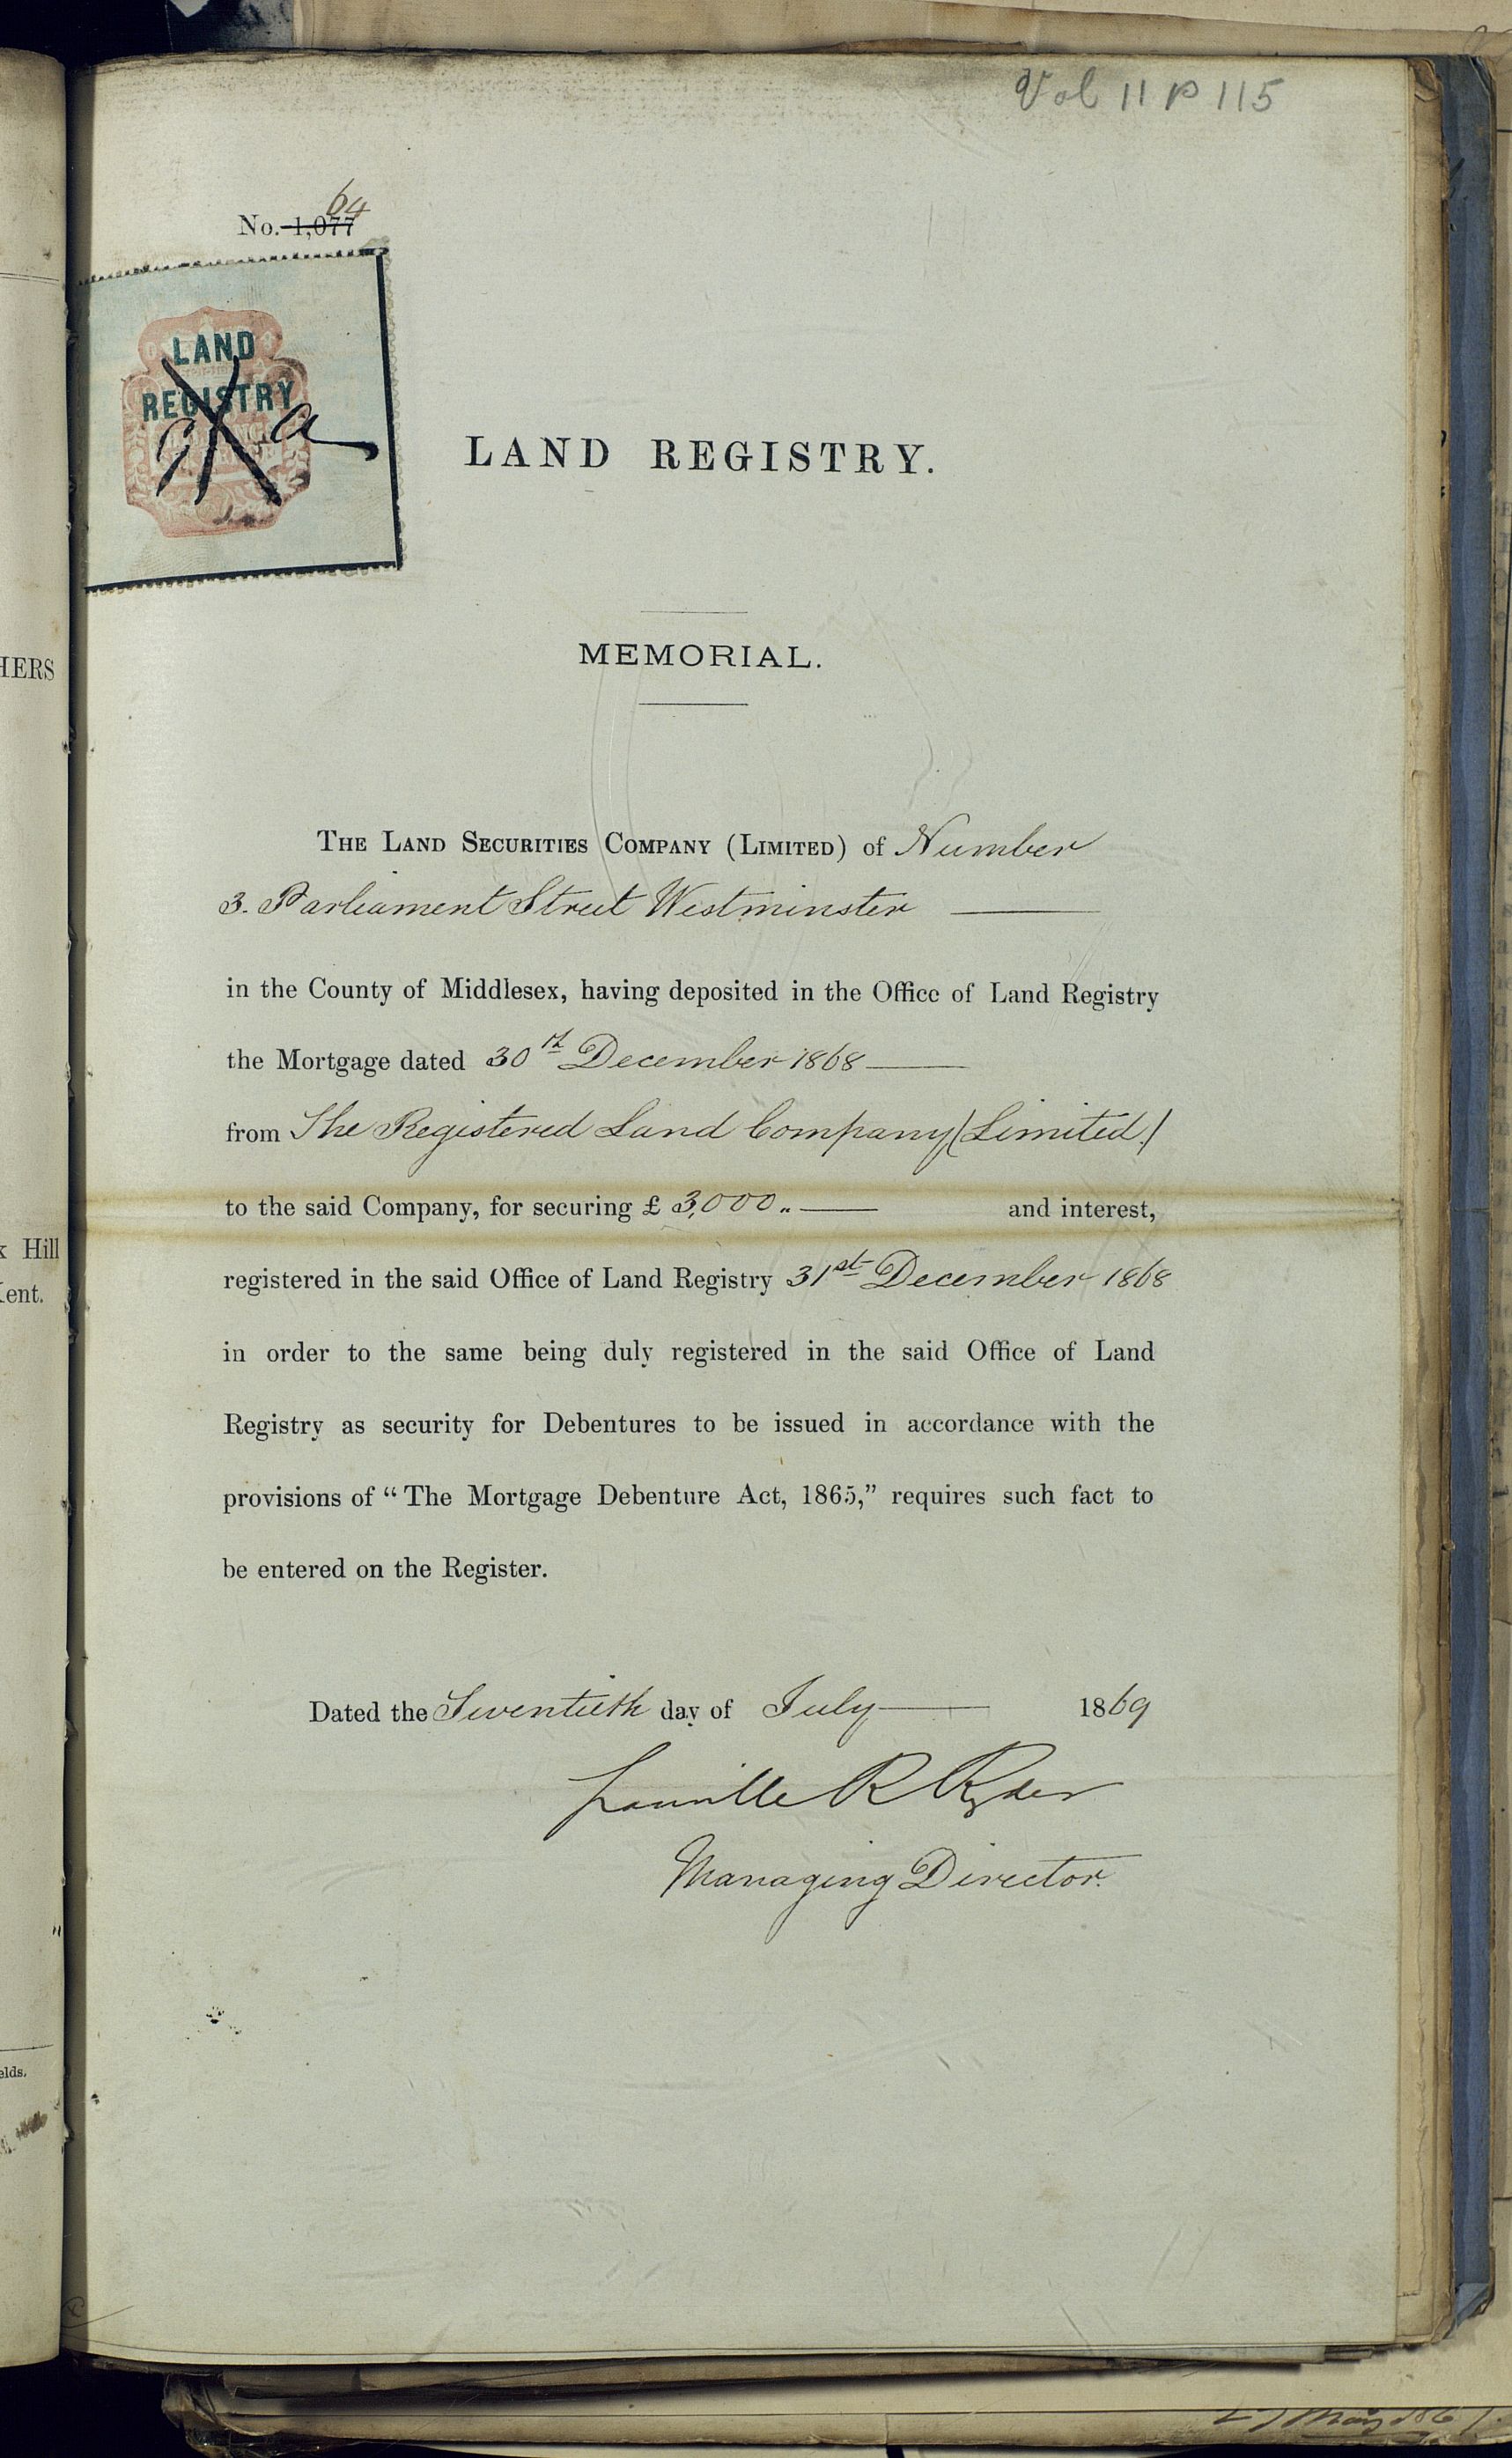 Vol 11 p 115
64
No. 1,077
LAND
REGISTRY
LAND REGISTRY.
MEMORIAL.
THE LAND SECURITIES COMPANY (LIMITED) of Number
3. Parliament Street Westminster
in the County of Middlesex, having deposited in the Office of Land Registry
the Mortgage dated 30th December 1868
from The Registered Land Company (Limited)
to the said Company, for securing £ 3,000 .. and interest,
registered in the said Office of Land Registry 31st December 1868
in order to the same being duly registered in the said Office of Land
Registry as security for Debentures to be issued in accordance with the
provisions of “The Mortgage Debenture Act, 1865,” requires such fact to
be entered on the Register.
Dated the Twentieth day of July 1869
Granville R Ryder
Managing Director.
HERS
Hill
Kent.
elds.